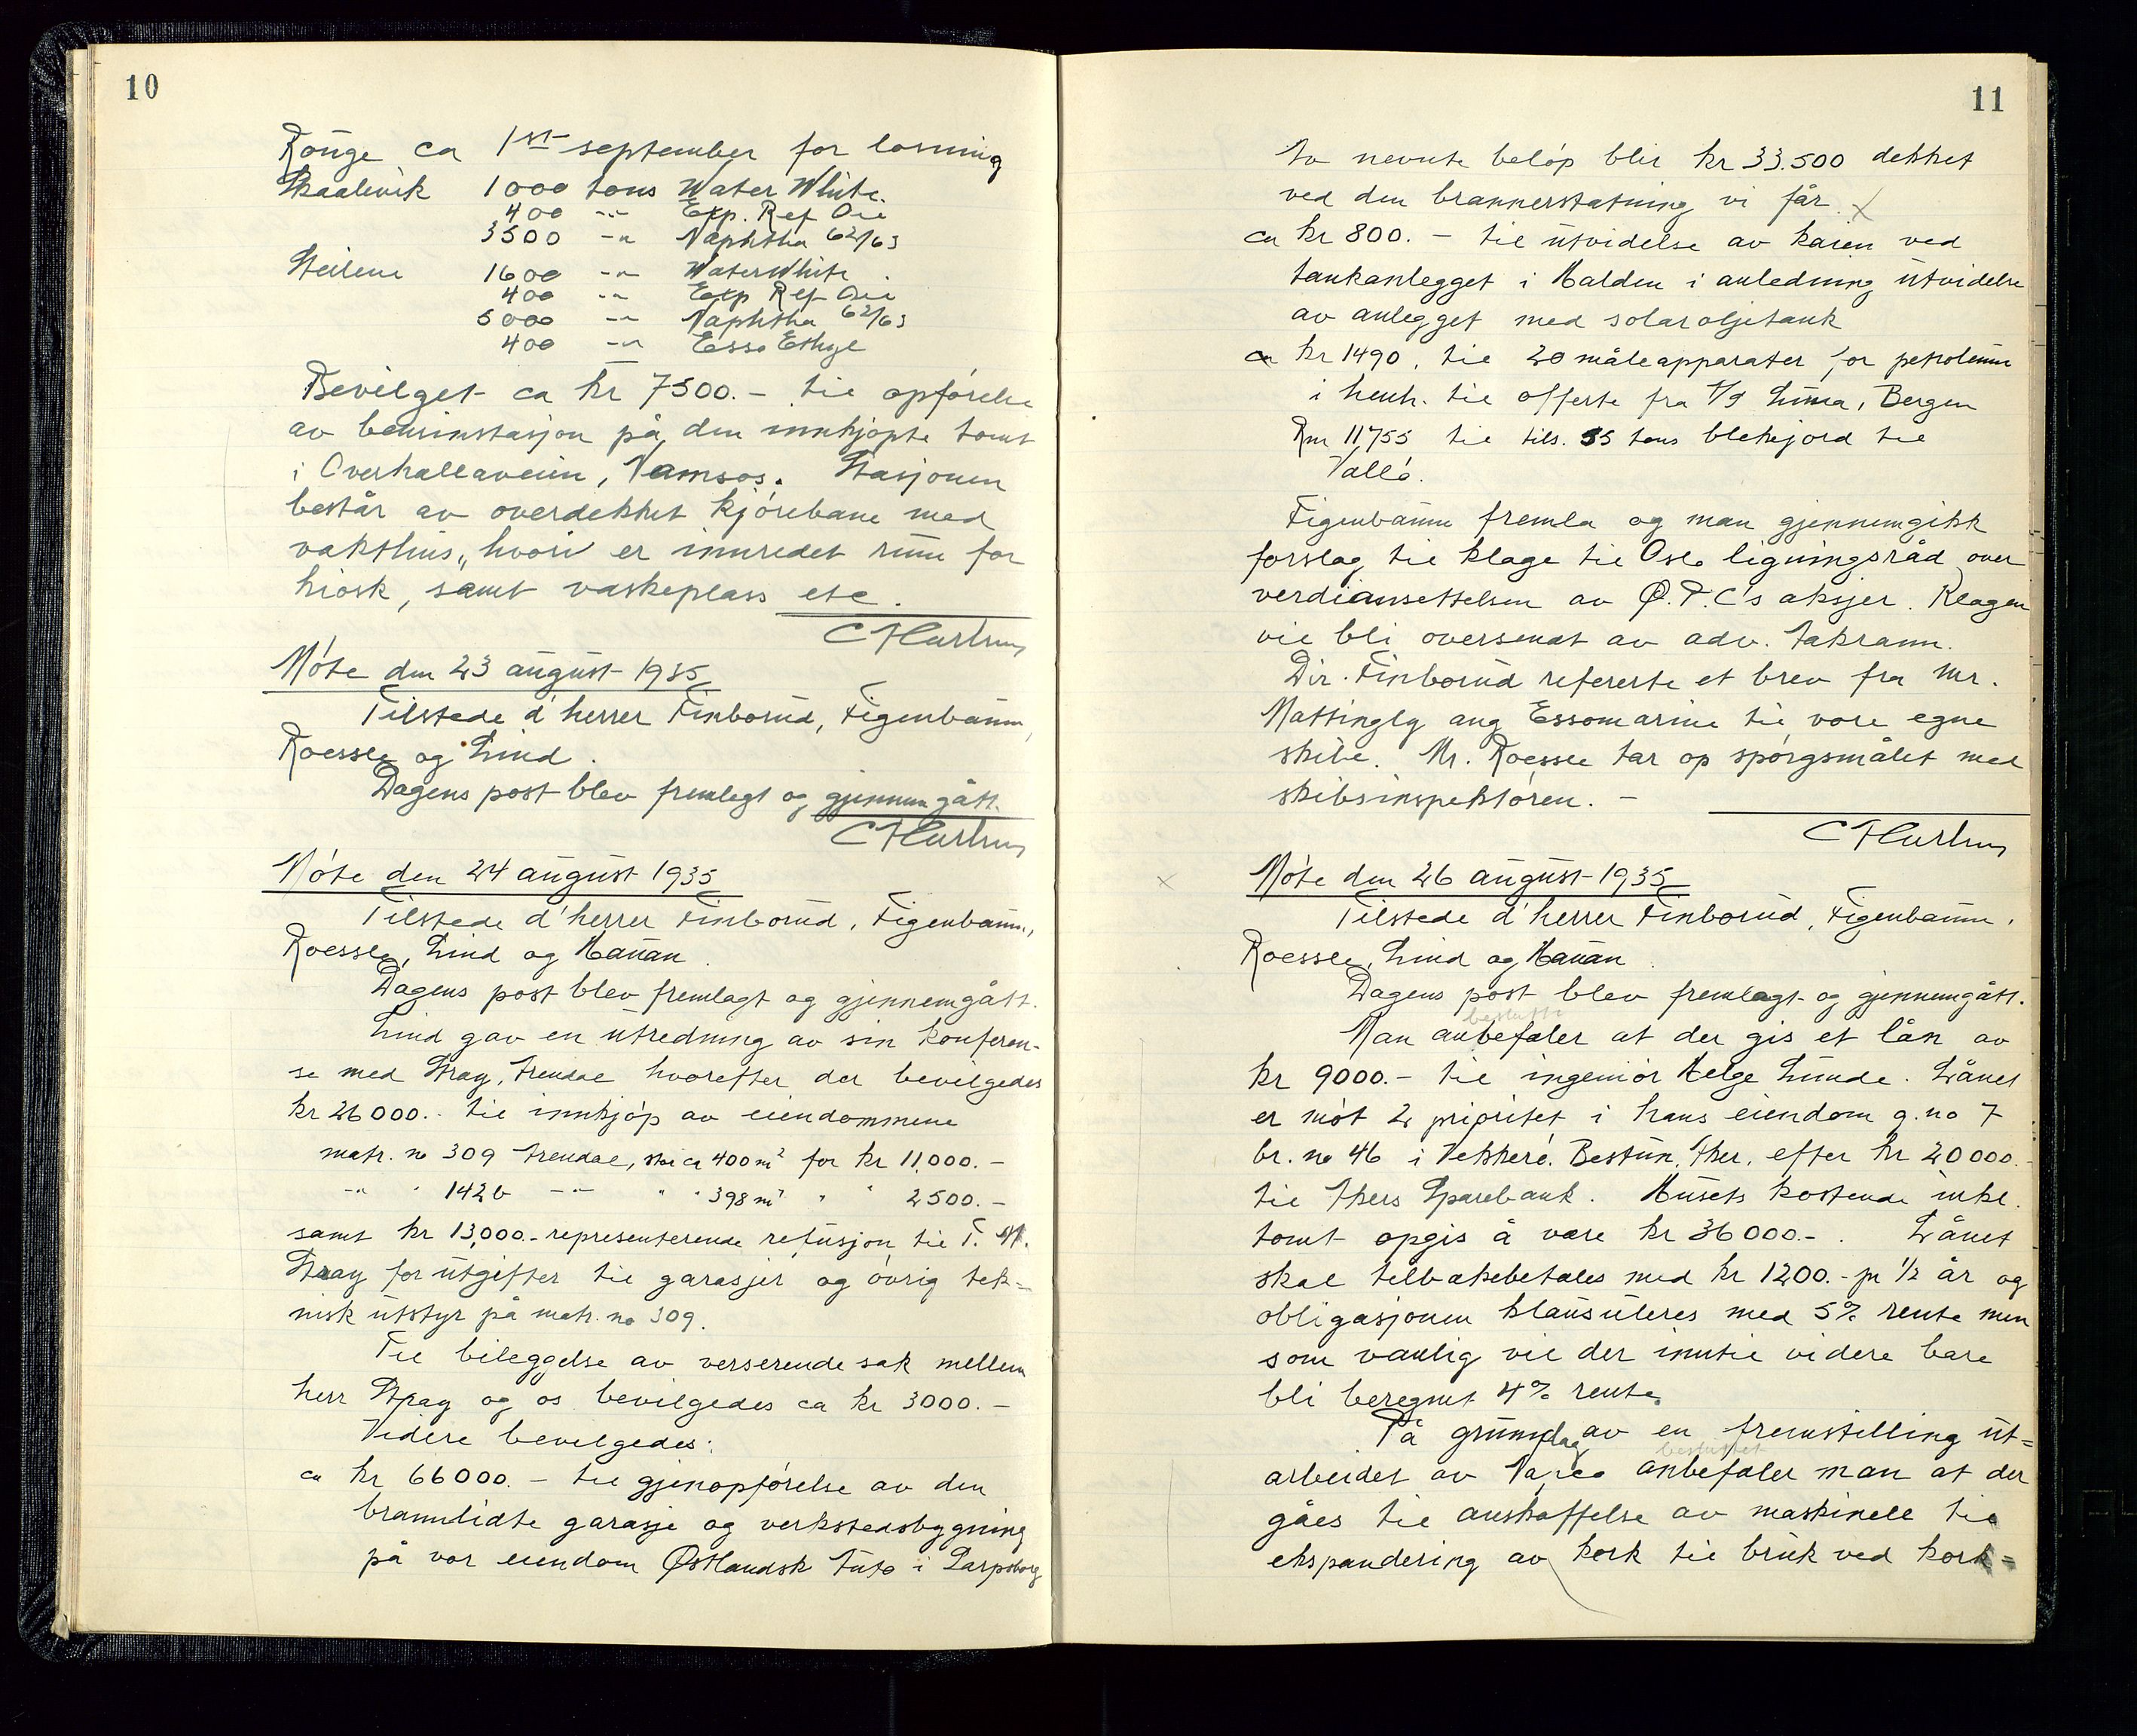 10
Rouge ca 1st september for losning
Skaalevik 1000 tons Water White.
400 -"- Exp. Ref Oil
3500 -"- Naphtha 62/63
Steilene 1600 -"- Water White.
400 -"- Exp Ref Oil
5000 -"- Naphtha 62/63
400 -"- Esso Ethyl
Bevilget ca kr 7500.- til opførelse
av bensinstasjon på den innkjøpte tomt
i Overhallaveien, Namsos. Stasjonen
består av overdekket kjørebane med
vakthus, hvori er innredet rum for
kiosk, samt vaskeplass etc.
Møte den 23 august 1935
Tilstede d'herrer Finborud, Figenbaum,
Roessle og Lind.
Dagens post blev fremlegt og gjennemgått.
Møte den 24 august 1935
Tilstede d'herrer Finborud, Figenbaum,
Roessle, Lind og Hauan.
Dagens post blev fremlagt og gjennemgått.
Lind gav en utredning av sin konferen-
se med Stray, Arendal hvorefter der bevilgedes
kr 26000.- til innkjøp av eiendommene
matr. no 309 Arendal, stor ca 400 m² for kr 11,000.-
-"- " 142b -"- " " 398 m² " " 2500.-
samt kr 13,000.- representerende refusjon til T.
Stray for utgifter til garasjer og øvrig tek-
nisk utstyr på matr. no 309.
Til bileggelse av verserende sak mellem
herr Stray og os bevilgedes ca kr 3000.-
Videre bevilgedes:
ca kr 66000.- til gjenopførelse av den
brannlidte garasje og verkstedsbygning
på vor eiendom Østlandsk Auto i Sarpsborg
11
Av nevnte beløp blir kr 33.500 dekket
ved den brannerstatning vi får. x
ca kr 800.- til utvidelse av kaien ved
tankanlegget i Halden i anledning utvidelse
av anlegget med solaroljetank
ca kr 1490. til 20 måleapparater for petroleum
i henh. til offerte fra A/S Luma, Bergen
Rm 11,755 til tils. 55 tons blekejord til
Vallø.
Figenbaum fremla og man gjennemgikk
forslag til klage til Oslo ligningsråd over
verdiansettelsen av Ø.P.C's aksjer. Klagen
vil bli oversendt av adv. Takrann.
Dir. Finborud refererte et brev fra Mr.
Mattingly ang Essomarine til vore egne
skibe. Mr. Roessle tar op spørgsmålet med
skibsinspektøren. -
x Møte den 26 august 1935
Tilstede d'herrer Finborud, Figenbaum,
Roessle, Lind og Hauan.
Dagens post blev fremlagt og gjennemgått.
beslutte
Man anbefaler at der gis et lån av
kr 9000.- til ingeniør Helge Lunde. Lånet
er mot 2 prioritet i hans eiendom g. no 7
br. no 46 i Vækkerø. Bestun, Aker, efter kr 20000.-
til Akers Sparebank. Husets kostende inkl.
tomt opgis å være kr 36000.-. Lånet
skal tilbakebetales med kr 1200.- pr 1/2 år og
obligasjonen klausuleres med 5% rente men
som vanlig vil der inntil videre bare
bli beregnet 4% rente.
På grunnlag av en fremstilling ut-
besluttet
arbeidet av anbefaler man at der
gåes til anskaffelse av maskinell til
ekspandering av kork til bruk ved kork-